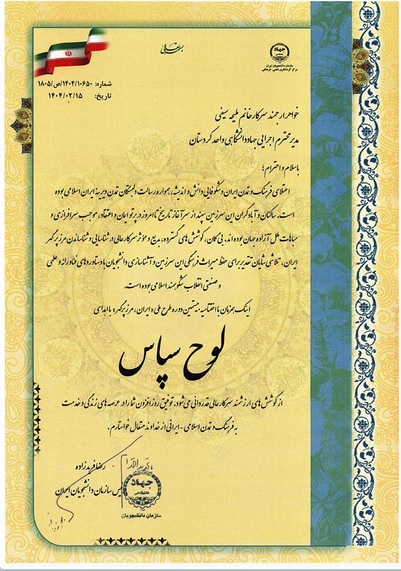 بسمه تعالی
جهاد
سازمان دانشجویان ایران
شماره: ۱۴۰۴/۱۰۶۵۰/ص/۱۸۰۵
تاریخ: ۱۴۰۴/۰۲/۱۵
خواهر ارجمند سرکار خانم ملیحه سیفی
مدیر محترم اجرایی جهاد دانشگاهی واحد کردستان
با سلام و احترام؛
اعتلای فرهنگ و تمدن ایران و شکوفایی دانش و اندیشه، همواره رسالت دلبستگان تمدن دیرینه ایران اسلامی بوده
است. ساکنان و یادگاران این سرزمین سپند از سرآغاز تاریخ تا امروز دیرتوامان و اعتقاد موجب سرافرازی و
مباهات ملل آزاده جهان بوده اند. بی گمان، کوشش های گسترده، مدبرانه و موثر سرکار عالی در شناسایی و شناساندن مرز پرگهر
ایران، تلاشی شایان تقدیر برای حفظ میراث فرهنگی این سرزمین و آشناسازی دانشجویان با دستاوردهای فناورانه و علمی
و صنعتی انقلاب شکوهمند اسلامی بوده است.
اینک همزمان با افتتاحیه بیستمین دوره طرح ملی «ایران، مرز پرگهر» با اهدای
لوح سپاس
از کوشش های ارزشمند سرکار عالی قدردانی می شود. توفیق روزافزون شما را در عرصه های زندگی و خدمت
به فرهنگ و تمدن اسلامی - ایرانی از خداوند متعال خواستارم.
رضا فریدزاده
رییس سازمان دانشجویان ایران
جهاد
دانشگاهی
سازمان دانشجویان